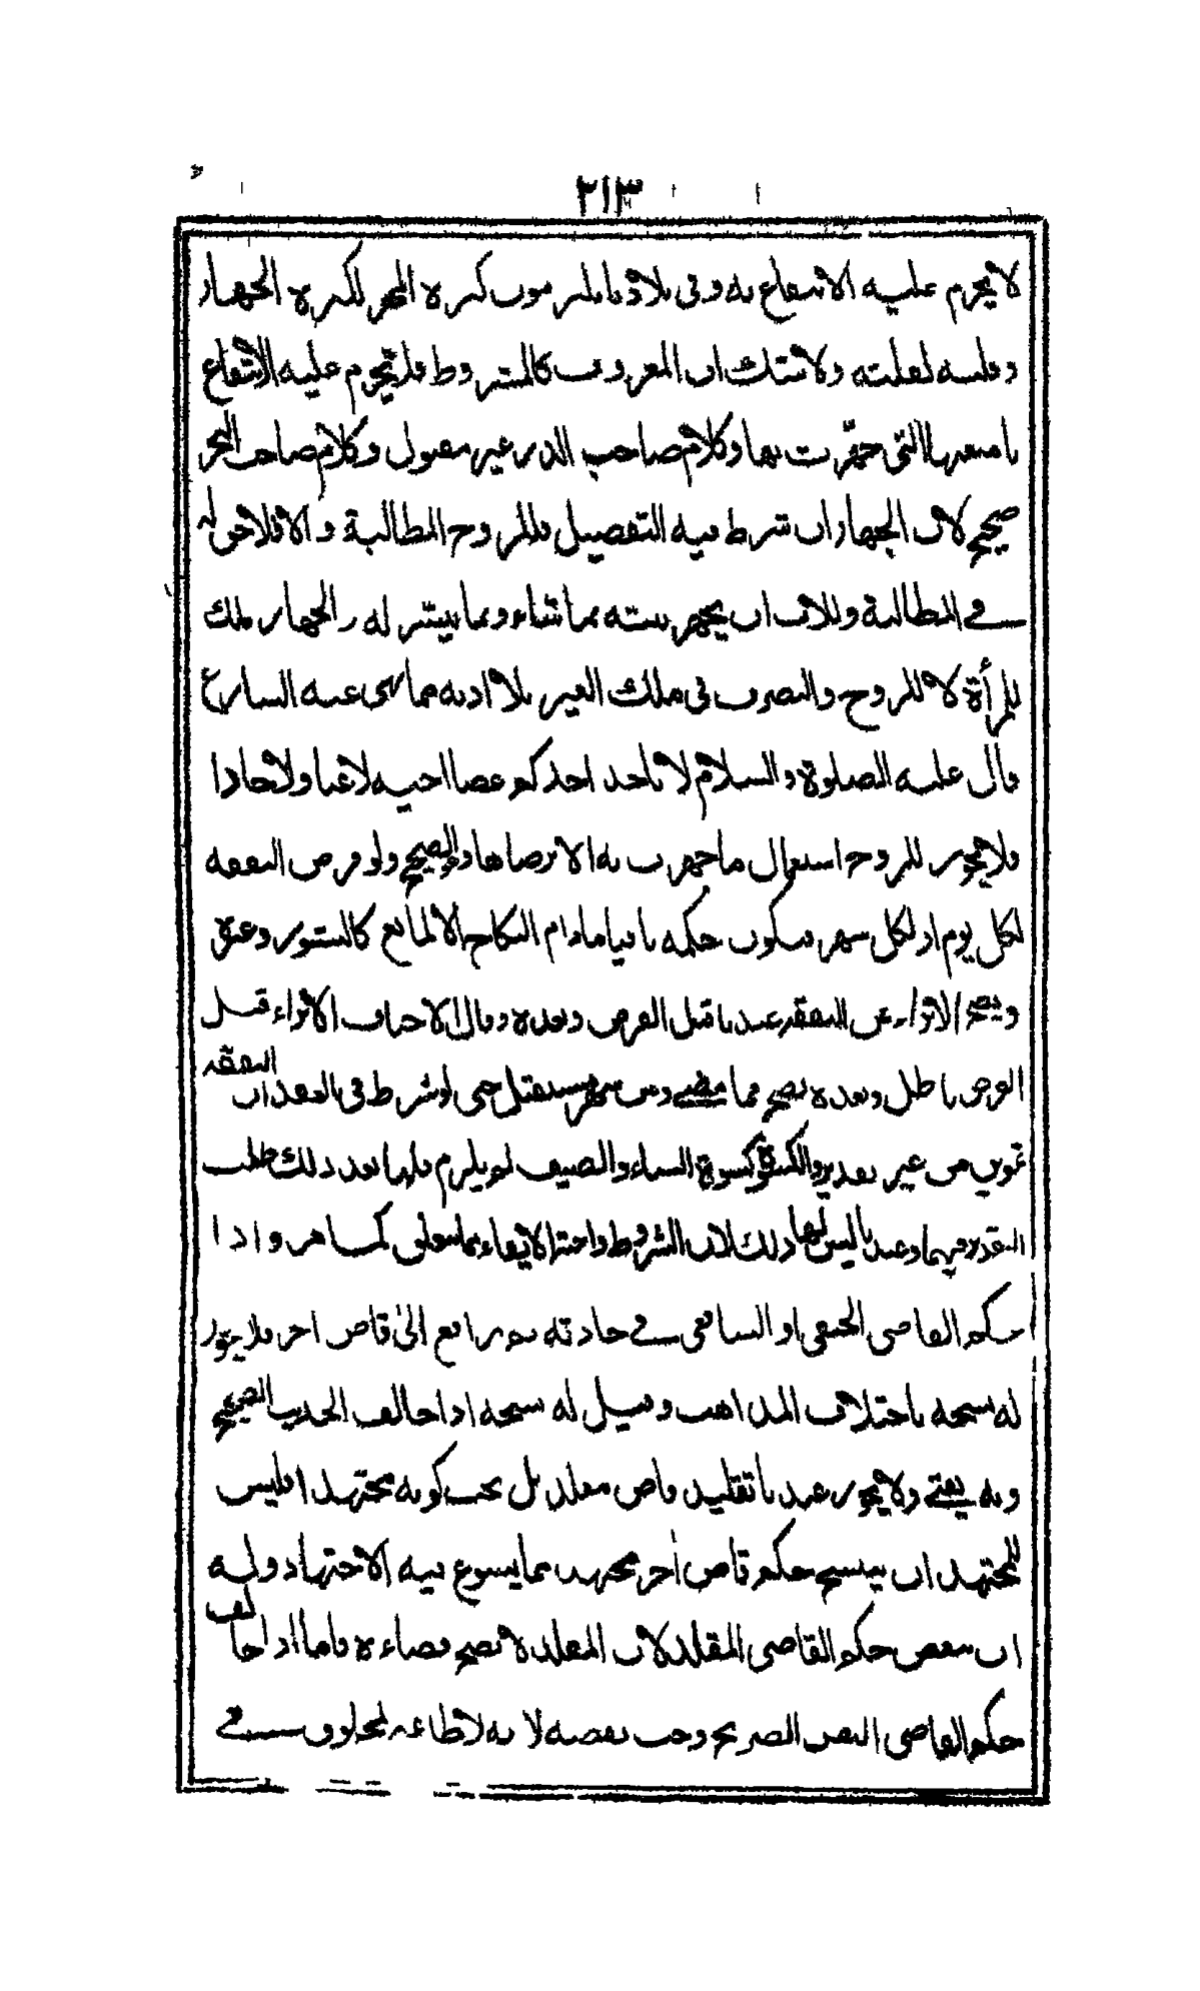 ٢١٣
لا يحرم عليه الانتفاع به وفى بلادنا يلتزمون كثرة المهر لكثرة الجهاز
وقلته لقلته ولا شك ان المعروف كالمشروط فلا يحرم عليه الانتفاع
بامتعتها التى جهزت بها وكلام صاحب الدر غير مقبول وكلام صاحب البحر
صحيح لان الجهاز ان شرط فيه التفصيل فللزوج المطالبة والا فلا حق له
فى المطالبة وللاب ان يجهز بنته بما شاء وبما تيسر له والجهاز ملك
للمرأة لا للزوج والتصرف فى ملك الغير بلا اذنه مما نهى عنه الشارع
قال عليه الصلوة والسلام لا ياخذ احدكم عصا اخيه لاعبا ولا جادا
فلا يجوز للزوج استعمال ما جهزت به الا برضاها والصحيح ولو فرض النفقة
لكل يوم او لكل شهر فيكون حكمه باقيا مادام النكاح الا لمانع كالنشوز وعندنا
ويصح الابراء عن النفقة عندنا قبل الفرض وبعده وقال الاحناف الابراء قبل
الفرض باطل وبعده يصح مما مضى ومن شهر مستقبل حتى لو شرط فى العقد ان النفقة
تموين من غير تقدير والكسوة كسوة الشتاء والصيف لم يلزم فلها بعد ذلك طلب
التقدير فيهما وعندنا ليس لها ذلك لان الشروط واجبة الايفاء بما سوى واذا
حكم القاضى الحنفى او الشافعى فى حادثة ثم رافع الى قاض اخر فلا يجوز
له نسخه باختلاف المذاهب وقيل له نسخه اذا خالف الحديث الصحيح
وبه يفتى ولا يجوز عندنا تقليد قاض مقلد بل يجب كونه مجتهدا فليس
للمجتهد ان ينسخ حكم قاض اخر مجتهد مما يسوغ فيه الاجتهاد وله
ان ينقض حكم القاضى المقلد لان المقلد لا يصح قضاءه فاما اذا خالف
حكم القاضى النص الصريح وجب نقضه لانه لا طاعة لمخلوق فى